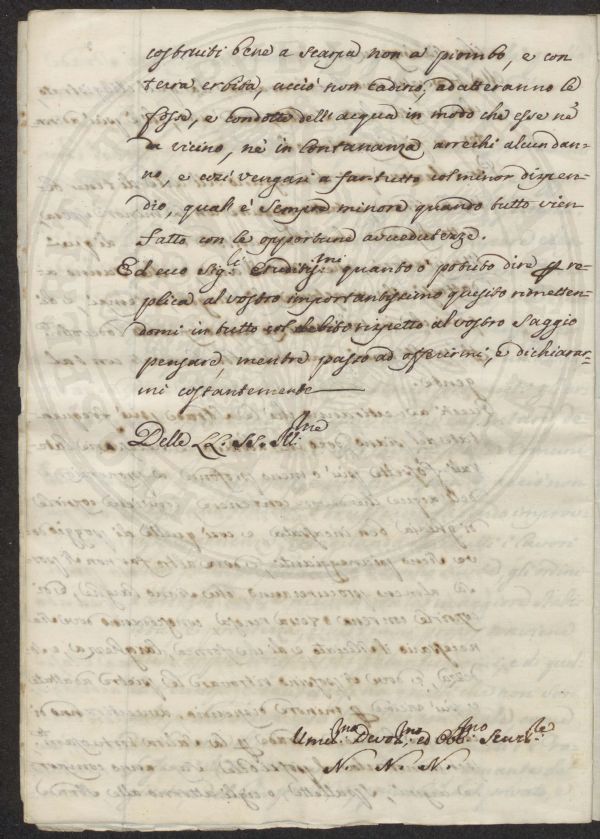 costruiti bene a scarpa non a piombo, e con
terra erbita, acciò non cadino, adatteranno le
fosse, e condotte dell'acqua in modo che esse nè
da vicino, nè in lontananza arrechi alcun dan-
no, e così vengasi a far tutto col minor dispen-
dio, qual è sempre minore quando tutto vien
fatto con le opportune avvedutezze.
Ed ecco Sig.li Eruditiss.mi quanto ò potuto dire per re-
plica al vostro importantissimo quesito rimetten-
domi in tutto col debito rispetto al vostro saggio
pensare, mentre passo ad offerirmi, e dichiarar-
mi costantemente
Delle LL. SS. Ill.me
Umil.mo Devot.mo ed Obb.mo Serv.re
N. N. N.